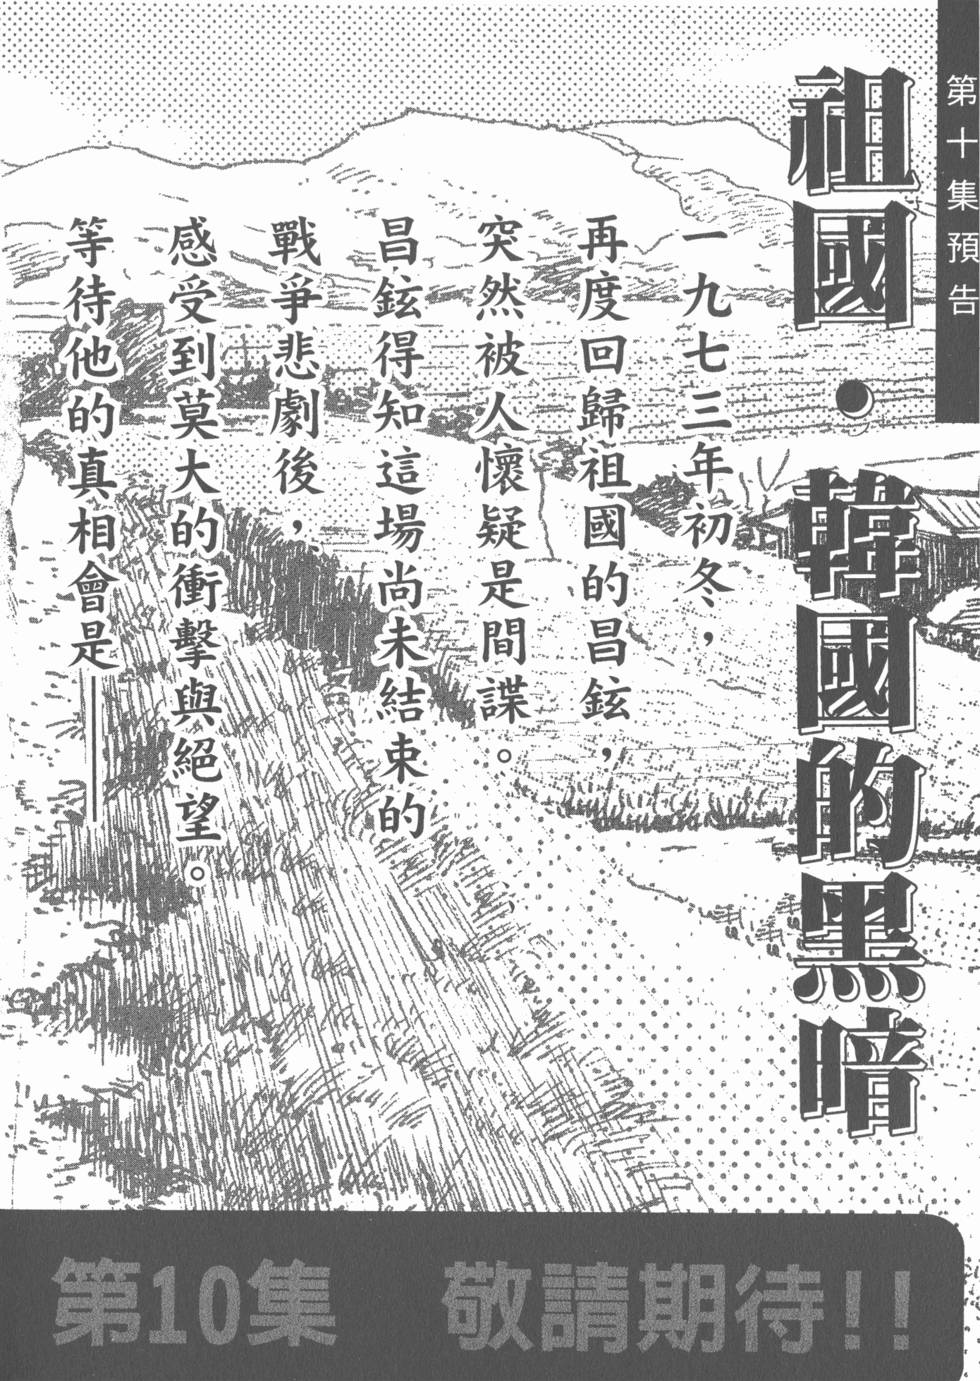 第十集預告
祖國・韓國的黑暗
一九七三年初冬，
再度回歸祖國的昌鉉，
突然被人懷疑是間諜。
昌鉉得知這場尚未結束的
戰爭悲劇後，
感受到莫大的衝擊與絕望。
等待他的真相會是——
第10集　敬請期待!!